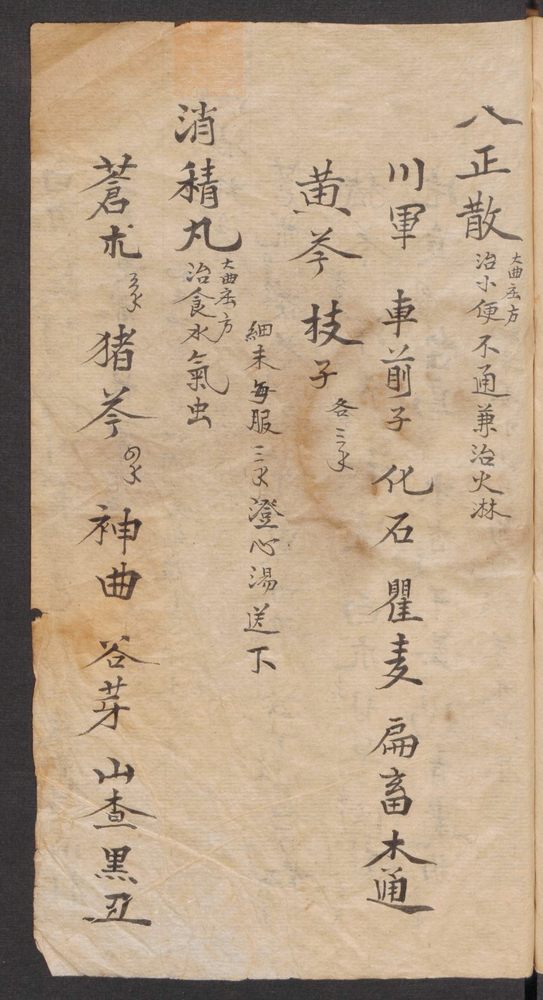 八正散 大曲庄方 治小便不通兼治火淋
川軍 車前子 化石 瞿麦 扁畜 木通
黄芩 枝子 各三水
細末每服三水澄心湯送下
消積丸 大曲庄方 治食水氣虫
蒼朮 猪芩 神曲 谷芽 山查 黒丑